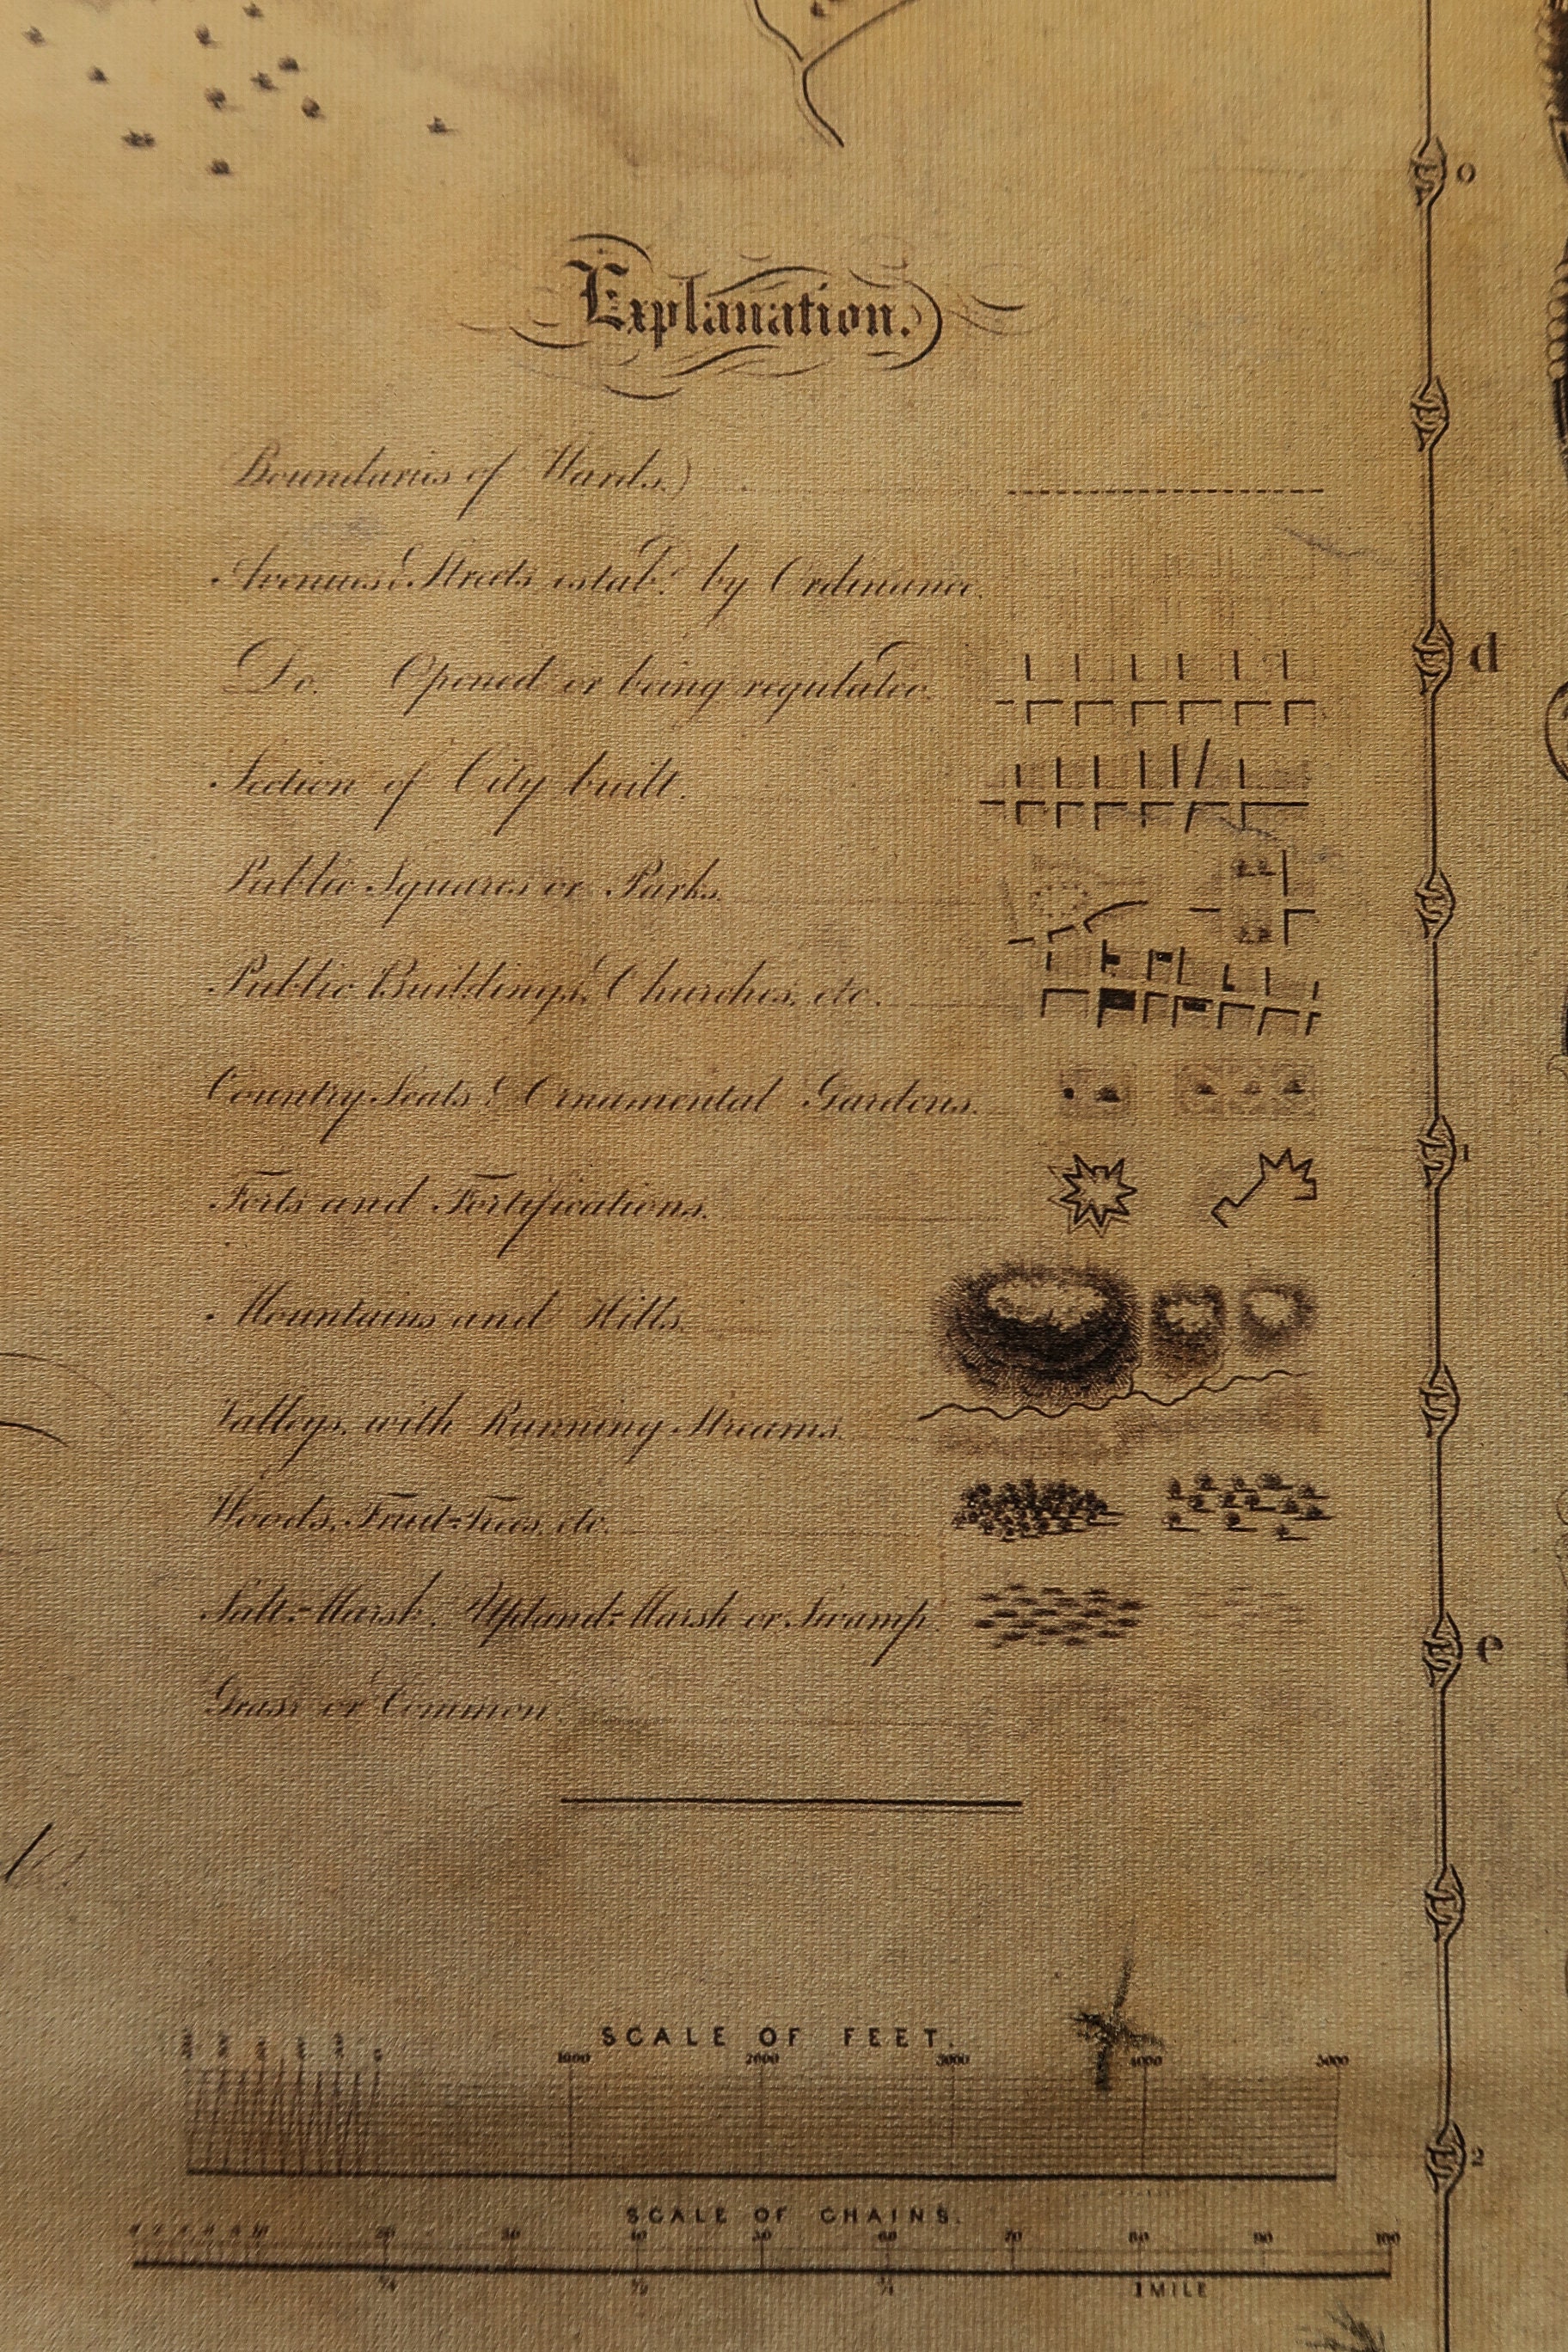 o
Explanation.
Boundaries of Wards.
Avenues & Streets estabd. by Ordinance.
d
Do. Opened or being regulated.
Section of City built.
Public Squares or Parks.
Public Buildings, Churches, etc.
Country Seats & Ornamental Gardens.
1
Forts and Fortifications.
Mountains and Hills.
Valleys, with Running Streams.
Woods, Fruit-Trees, etc.
Salt-Marsh. Upland-Marsh or Swamp.
e
Grass or Common.
SCALE OF FEET.
0 1000 2000 3000 4000 5000
2
SCALE OF CHAINS.
2 4 6 8 10 20 30 40 50 60 70 80 90 100
1/4 1/2 3/4 1 MILE